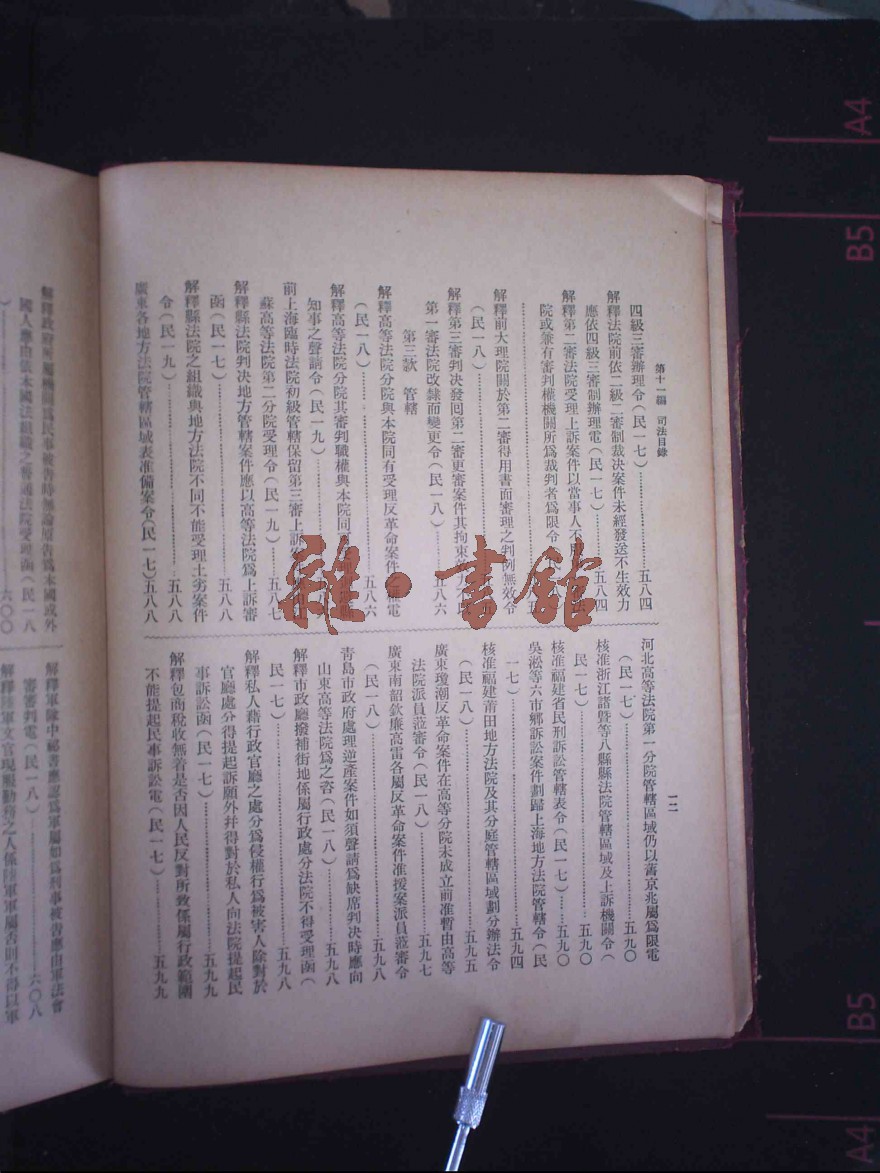 第十一編 司法目錄
一二
四級三審辦理令(民一七)…………五八四
解釋法院前依二級二審制裁決案件未經發送不生效力
應依四級三審制辦理電(民一七)…………五八四
解釋第二審法院受理上訴案件以當事人不
院或兼有審判權機關所爲裁判者爲限令(民一
解釋前大理院關於第二審得用書面審理之判例無效令
(民一八)…………五
解釋第三審判決發回第二審更審案件其拘束
第一審法院改隸而變更令(民一八)…………五八六
第三款 管轄
解釋高等法院分院與本院同有受理反革命案件
電
(民一八)…………五八六
解釋高等法院分院其審判職權與本院同
知事之聲請令(民一九)…………
前上海臨時法院初級管轄保留第三審上訴
蘇高等法院第二分院受理令(民一九)…………五八七
解釋縣法院判決地方管轄案件應以高等法院爲上訴審
函(民一七)…………五八八
解釋縣法院之組織與地方法院不同不能受理土劣案件
令(民一九)…………五八八
廣東各地方法院管轄區域表准備案令(民一七)五八八
河北高等法院第一分院管轄區域仍以舊京兆屬爲限電
(民一七)…………五九〇
核准浙江諸暨等八縣縣法院管轄區域及上訴機關令(
民一七)…………五九〇
核准福建省民刑訴訟管轄表令(民一七)…………五九〇
吳淞等六市鄉訴訟案件劃歸上海地方法院管轄令(民
一七)…………五九四
核准福建莆田地方法院及其分庭管轄區域劃分辦法令
(民一八)…………五九五
廣東瓊潮反革命案件在高等分院未成立前准暫由高等
法院派員蒞審令(民一八)…………五九七
廣東南韶欽廉高雷各屬反革命案件准援案派員蒞審令
(民一八)…………五九八
青島市政府處理逆產案件如須聲請爲缺席判決時應向
山東高等法院爲之咨(民一八)…………五九八
解釋市政廳撥補街地係屬行政處分法院不得受理函(
民一七)…………五九八
解釋私人藉行政官廳之處分爲侵權行爲被害人除對於
官廳處分得提起訴願外并得對於私人向法院提起民
事訴訟函(民一七)…………五九九
解釋包商稅收無着是否因人民反對所致係屬行政範圍
不能提起民事訴訟電(民一七)…………五九九
解釋政府所屬機關爲民事被告時無論原告爲本國或外
國人應由依本國法組織之普通法院受理函(民一八
)…………六〇〇
解釋軍隊中祕書應認爲軍屬如爲刑事被告應由軍法會
審審判電(民一八)…………六〇八
解釋軍文官現服勤務之人係陸軍軍屬否則不得以軍
雜·書館
A4
B5
B5
A4